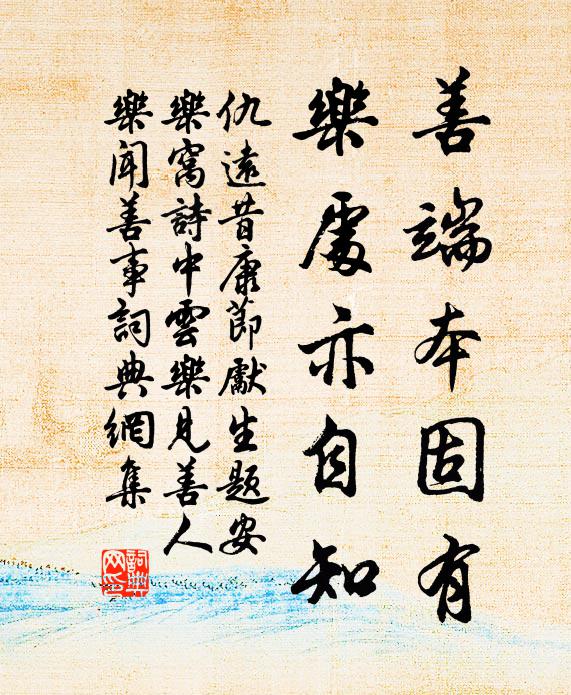 善端本固有
樂處亦自知
仇遠昔康節獻生題安
樂窩詩中雲樂見善人
樂聞善事詞典網集